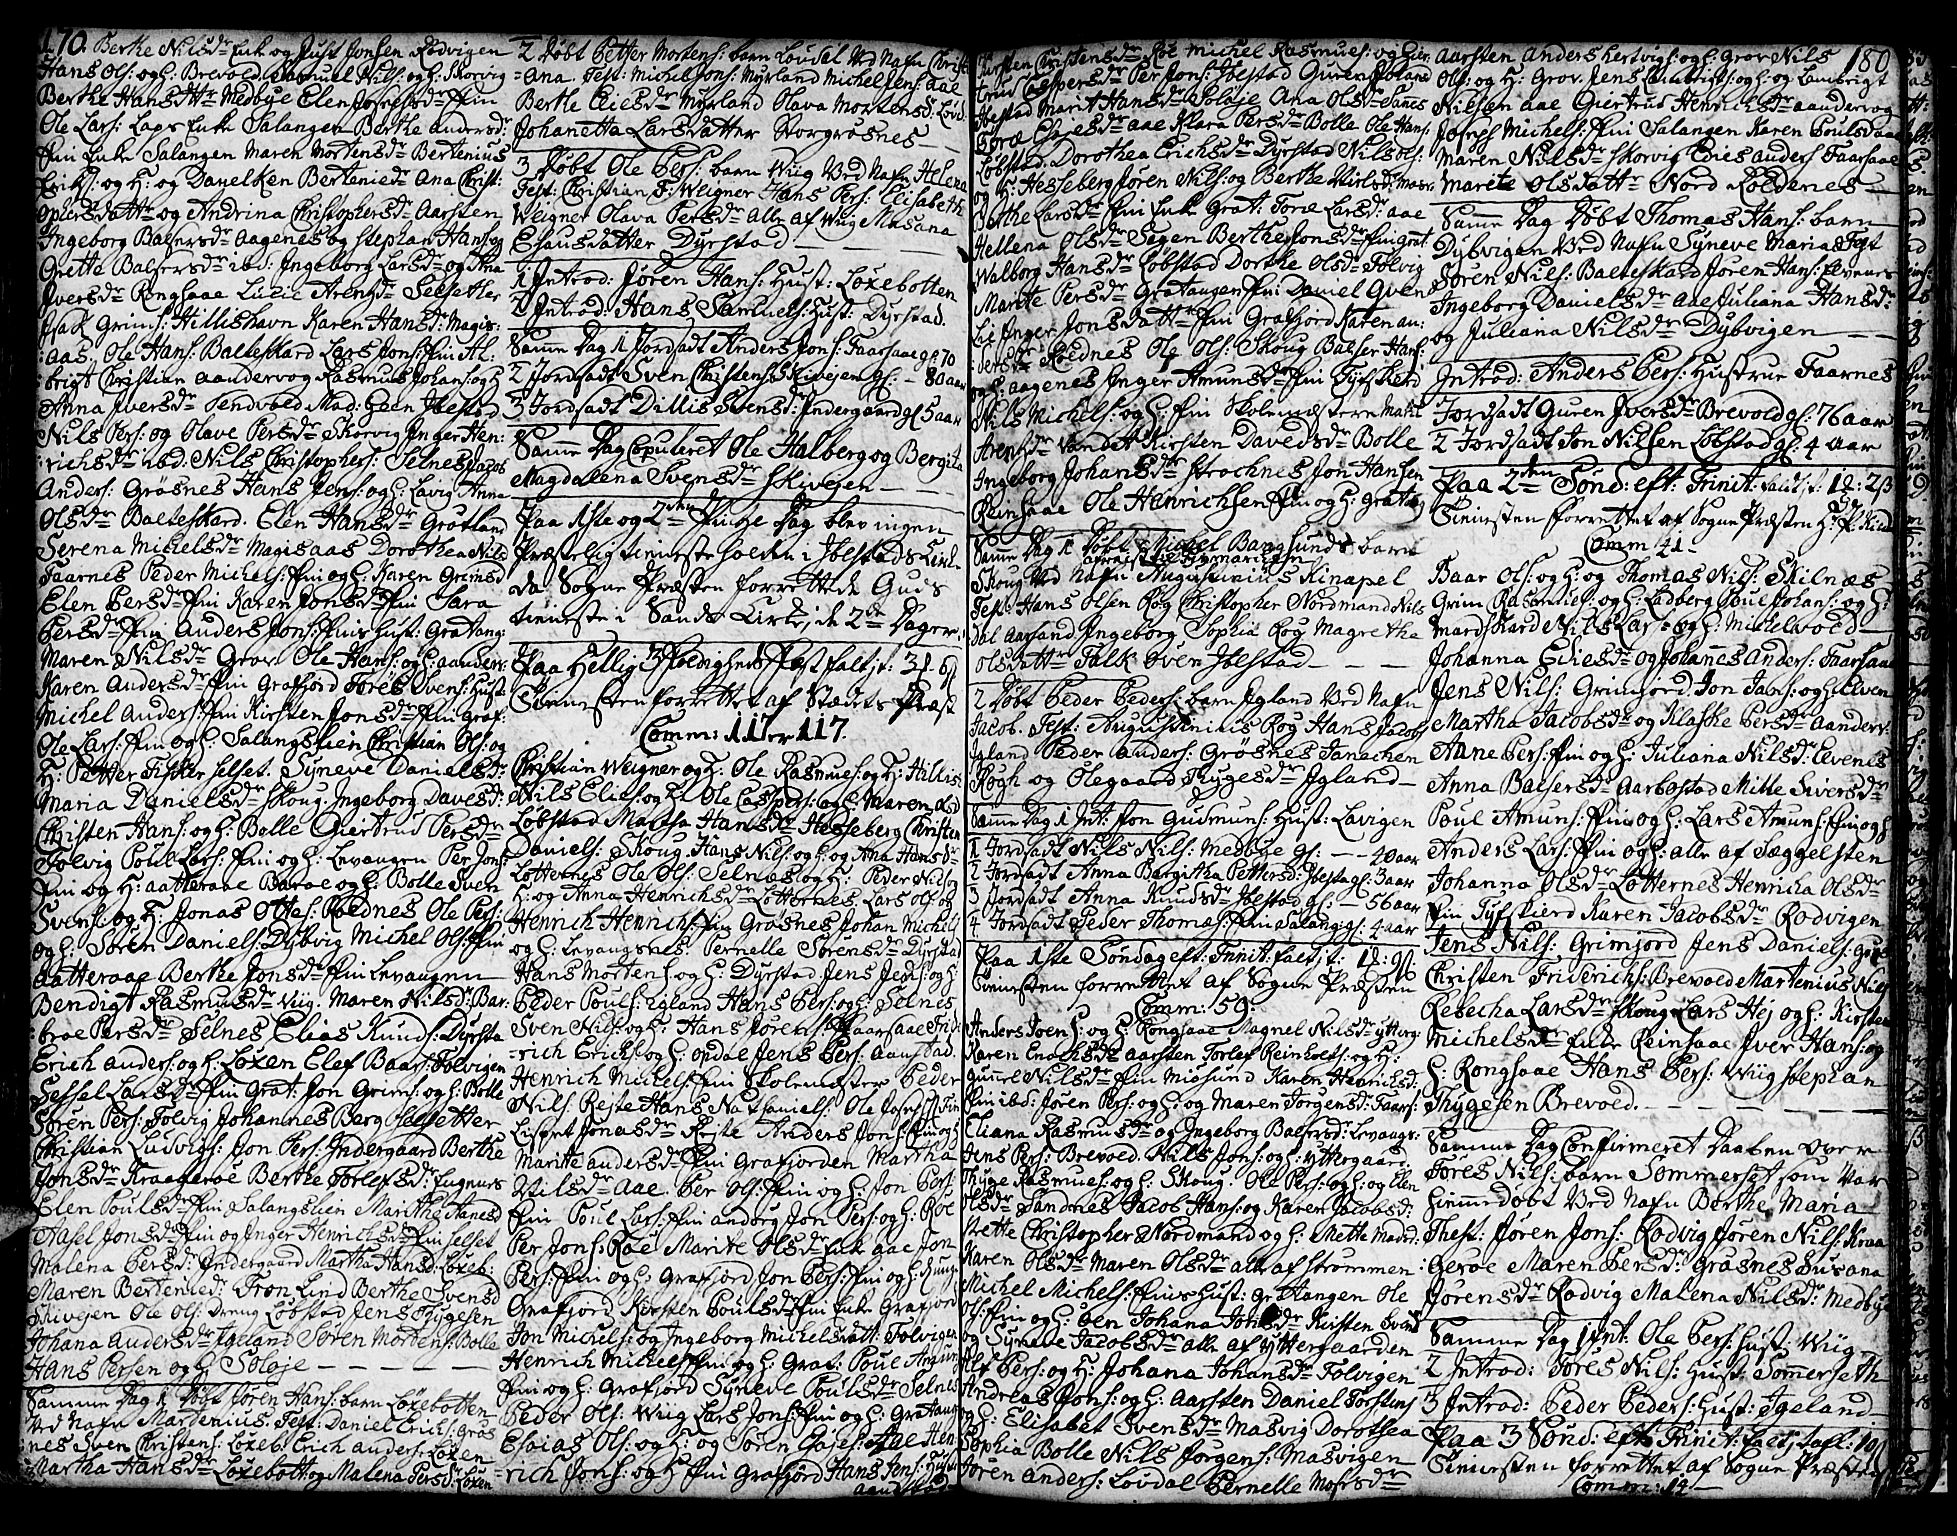 170. Berthe Nilsdr Enk og Just Jonsen Rødvigen
Hans Ols: og H: Brevold Samuel Nils: og H: Skorvig
Berthe Hansdttr Medbye Elen Josefsdr Fin
Ole Lars: Laps Enke Salangen Berthe Andersdr
Fin Enke Salangen Maren Mortensdr Bertenius
Erichs: og H: og Danelken Berteniedr Ana Christ:
ophersdattr og Andrina Christophersdr Aarsten
Ingeborg Balsersdr Aagenes og Stephan Hans: og
Grette Balsersdr ibd: Ingeborg Larsdr og Ana
Iversdr Rongsaae Lucie Arentzdr Selsetter
Isak Grims: Hillishavn Karen Hansdr Magis:
:aas. Ole Hans: Balteskard Lars Jons: Fin Al:
brigt Christian Aandervog Rasmus Johans: og H
Anna Iversdr Tendvold Mad: Geen Ibestad
Nils Pers: og Olave Persdr Skorvig Inger Hen:
:richsdr ibd. Nils Christophers: Selnes Jacob
Anders: Grøsnes Hans Jens: og H: Lavig Anna
Olsdr Balteskard. Elen Hansdr Grotland
Serena Michelsdr Magisaas Dorothea Nils
Faarnes Peder Michels: Fin og H: Karen Grimsd
Elen Persdr Fin Karen Jonsdr Fin Sara
Persdr Fin Anders Jons: Fins Hust: Gratang:
Maren Nilsdr Grov Ole Hans: og H: Aanderv:
Karen Andersdr Fin Grafjord Tores Svens: Hust
Michel Anders: Fin Kirsten Jonsdr Fin Graf:
Ole Lars: Fin og H: Salangslien Christian Ols: og
H: Petter Fisker Selset. Syneve Danielsdr:
Maria Danielsdr Skoug. Ingeborg Davesdr:
Christen Hans: og H: Bolle Giertrud Persdr
Tolvig Poul Lars: Fin og H: Levangen Per Jons:
Fin og H: Aatteraae Baroe og H: Bolle Sven
Svens: og H: Jonas Ottes: Roednes Ole Pers:
og H: Søren Daniels: Dybvig Michel Ols: Fin
Aatteraae Berthe Jonsdr Fin Levangen
Bendigt Rasmusdr Wiig. Maren Nilsdr: Bar:
broe Persdr Selnes Elias Knuds: Dyrsta
Erich Anders: og H: Loxen Elef Baars: Tolvigen
Sessel Larsdr Fin Grat: Jon Grims: og H: Bolle
Søren Pers: Tolvig Johannes Berg Selsetter
Christian Ludvigs: Jon Pers: Indergaard Berthe
Jonsdr Kraagerøe Berthe Torlefsdr:
Elen Poulsdr Fin Salangslien Marithe Anesd
Jonsdr Fin og Inger Henrichsdr Fin Selset
Malena Persdr: Indergaard Martha Hansd: Loxeb:
Maren Berteniedr: Tron Lind Berthe Svensd
Skivejen Ole Ols: Dreng Løbstad Jens Thygesen
Johana Andersdr Igeland Søren Mortens: Bolle
Hans Persen og H: Soløje
Samme Dag 1 Døbt Jøren Hans: barn Loxebotten
Ved Nafn Martenius Test: Daniel Erichs: Grøs
nes Sven Christens: Loxeb. Erich Anders: Loxen
Martha Hansdr Loxebott: og Malena Persdr Loxen
2 Døbt Petter Mortens: barn Løvdal Ved Nafn Christi
=Ana. Test: Michel Jons: Myrland Michel Jens: Aae
Berthe Eliesdr Myrland Olava Mortensd: Løvd:
Johanetta Larsdatter Storgrøsnes
3 Døbt Ole Pers: barn Wiig Ved Nafn Helena
Test: Christian F: Weigner Hans Pers: Elisabeth
Weigner Olava Persdr alle af Wiig Masana
Esausdatter Dyrstad
1 Introd: Jøren Hans: Hust: Loxebotten
2 Introd: Hans Samuels: Hust: Dyrstad.
Samme Dag 1 Jordsadt Anders Jons: Faarsaae gl: 70
2 Jordsadt Sven Christens: Skivejen gl: 80 aar
3 Jordsadt Dillis Svensdr Indergaard gl: 5 aar
Samme Dag Copuleret Ole Halberg og Bergita
Magdalena Svensdr Skivejen
Paa 1ste og 2den Pintze Dag blev ingen
Præstelig tieneste holden i Ibestads Kirke
da Sogne Præsten forrettede Guds
tieneste i Sands Kirke, de 2de Dager.
Paa Hellig 3foldigheds Fest faldt: 3d: 6s
Tienesten forrettet af Stædets Præst
Comm: 117 er 117.
Christian Weigner og H: Ole Rasmus: og H: Hillis:
Nils Elies: og H Ole Caspers: og H: Maren ibd
Løbstad Martha Hansdr Hesseberg Christen
Daniels: Skoug. Hans Nils: og H: og Ana Hansdr
Lotternes Ole Ols: Selnæs og H: Peder Nils: og
H: og Anna Henrichsdr Lotternes Lars Ols: og
Henrich Henrichs: Fin Grøsnes Johan Michels
og H: Levangsnes. Pernelle Sørensdr Dyrstad
Hans Mortens: og H: Dyrstad Jens Jens: og H:
Peder Pouls: Igland Hans Pers: og H: Selnes
Sven Nils: og H: Hans Jørens: Faarsaae Frid:
=rich Erichs: og H: Opdøe Jens Pers: Aanstad.
Henrich Michels: Fin Skolemester Peder
Nils: Rejte Hans Nathaniels: Ole Josephs: Fin
Lisbet Jonasdr Rejte Anders Jons: Fin og H
Marite Andersdr Fin Grafjorden Martha
Nilsdr Aae. Per Ols: Fin og H: Jon Pers:
Fin Poul Lars: Fin Andørg Jon Pers: og H: Roe
Per Jons: Roe Marite Olsdr Enk Aae Jon
Pers: Fin og H: Grafjord Jon Pers: Fin og H: Junge
Grafjord Kirsten Poulsdr Fin Enke Grafjord
Jon Michels: og Ingeborg Michelsdatt: Tolvigen
Henrich Michels: Fin og H: Grat: Poul Amun:
Fin og H: Grafjord Syneve Poulsdr Selnes
Peder Ols: Wiig Lars Jons: Fin og H: Gratang
Esaias Ols: og H: og Søren Esajes: Aae Hen:
rich Jons: og H Fin Grafjord Hans Jens: Hust
Aanstad
Kirsten Christensdr Roe Michel Rasmus: og Gier
trud Caspersdr Per Jons: Ibestad Guren Jolans
Ibestad Marit Hansdr Soløje Ana Olsdr Sanes
Toræ Eliesdr Aae Klara Persdr Bolle Ole Hans:
Løbstad. Dorothea Erichsdr Dyrstad Nils Ols:
og H: Hesseberg Jøren Nils: og Berthe Nielsdr Masv
Berthe Larsdr Fin Enk Grat: Toræ Larsdr Aae
Hellena Olsdr Segen Berthe Jonsdr Fin Grat:
Walborg Hansdr Løbstad Dorthe Olsdr Tolvig
Marite Persdr Gratangen Fin Daniel Qven
Inger Jonsdattr Fin Grafjord Karen An:
dersdr Roednes Ole Ols: Skoug Balser Hans:
og H: Aagenes Inger Amunsdr Fin Tysskierd
Nils Michels: og H: Fin Skolemestere Malit
Arentzdr Vandet Kirsten Davedsdr Bolle
Ingeborg Johansdr Strochnes Jon Hansen
Reinsaae Ole Henrichsen Fin og H: Gratang
Samme Dag 1 Døbt Michel Bangsunds barn
Skoug Ved Nafn Augustinius Kinapel
Test: Hans Olsen Rog Christopher Nordmand Nils
Dal Aarsand Ingeborg Sophia Rog Magrethe
Olsdattr Falk Øven Ibestad
2 Døbt Peder Peders: barn Igland Ved Nafn
Jacob. Test: Augustinius Rog Hans Jacobs
Igland Peder Anders: Grøsnes Janachen
Rogh og Olegaard Thygesdr Igland
Samme Dag 1 Int: Jon Gudmuns: Hust: Lavigen
1 Jordsadt Nils Nils: Medbye gl: 20 aar
2 Jordsadt Anna Bargitha Pettersd: Ibesta gl: 3 aar
3 Jordsadt Anna Knudsdr Ibestad gl: 56 aar
4 Jordsadt Peder Thomæs: Fin Salang gl: 4 aar
Paa 1ste Søndag eft: Trinit: faldt: 1d: 9s
Tienesten forrettet af Sogne Præsten
Comm: 59.
Anders Joens: og H: Rongsaae Magnel Nilsdr Ytterg
Karen Enochsdr Aarsten Torlef Reinholts: og H:
Gunnel Nilsdr Fin Miøsund Karen Henrichsd:
Fin ibd: Jøren Pers: og H: og Maren Jørgensd: Faars:
Eliana Rasmusdr og Ingeborg Balsersdr Levangs:
Jens Pers: Brevold. Nils Jons: og H: Yttergaard
Thyge Rasmus: og H: Skoug. Ole Pers: og H: og Elen
Olsdr Sandnes Jacob Hans: og Karen Jacobsd:
Nette Christopher Nordmand og H: Mette Madsd:
Karen Olsdr Maren Olsdr alle af Strommen
Michel Michels: Fins Hust: Gratangen Ole
Ols: Fin og H: Øen Johana Jonsdr Kirsten Svens
og Syneve Jacobsdr alle af Yttergaarden
Alf Pers: og H: Johana Johansdr Tolvigen
Andreas Jons: og H: Aarsten Daniel Torstens
og H: Elisabet Svensdr Masvig Dorothea
Sophia Bolle Nils Jørgens: Masvigen
Jøren Anders: Løvdal Pernelle Mosesdr
Aarsten Anders Hertvigs: og H: Grov Nils 180
Ols: og H: Grov. Jens Lambrigts: og H: og Lambrigt
Nilsen Aae Giertrud Henrichsdr Aandervog
Joseph Michels: Fin Salangen Karen Poulsd Aae
Maren Nilsdr Skorvig Edies Anders: Faarsaae
Marite Olsdattr Nord Roldenes
Samme Dag Døbt Thomas Hans: barn
Dybvigen Ved Nafn Syneve Maria Test
Søren Nils: Balteskard Jøren Hans: Elvenes
Ingeborg Danielsdr Aae Juliana Hansdr
og Juliana Nilsdr Dybvigen
Introd: Anders Pers: Hustrue Faarnes
1 Jordsadt Guren Iversdr Brevold gl: 76 aar
2 Jordsadt Jon Nilsen Løbstad gl: 4 aar
Paa 2den Sønd: eft: Trinit: faldt: 1d: 2s
Tienesten forrettet af Sogne Præsten Hr P: Kild
Comm: 41
Baar Ols: og H: og Thomas Nils: Skilnæs
Grim Rasmus: og H: Ladberg Poul Johans: og H:
Mardskard Nils Lars: og H: Michelvold
Johanna Ediesdr og Johannes Anders: Faarsaae
Jens Nils: Grimfjord. Jon Jans: og H: Elven
Martha Jacobsdr og Klaske Persdr Aanderv:
Hane Pers: Fin og H: Juliana Nilsdr Elvenes
Anna Balsersdr Aarbostad Mitte Siversdr
Poul Amuns: Fin og H: Lars Amuns: Fin og H
Anders Lars: Fin og H: alle af Sæggelsten
Johanna Olsdr Lotternes Henricha Olsdr
Fin Tysskierd Karen Jacobsdr Rødvigen
Jens Nils: Grimfjord Jens Daniels: Grøs
Christen Friderichs: Brevold Martenius Nils
Rebecha Larsdr Skoug Lars Hej og H: Kirsten
Michelsdr Enke Reinsaae Iver Hans: og
H: Rongsaae Hans Pers: Wiig Stephan
Thygesen Brevold.
Samme Dag Confirmeret Daaben over
Tores Nils: barn Sommerset som var
hiemmedøbt Ved Nafn Berthe Maria
Thest: Jøren Jons: Rødvig Jøren Nils: Kraa
gerøe Maren Persdr: Grøsnes Susana
Jørensdr Rødvig Malena Nilsdr: Medbye
Samme Dag 1 Int: Ole Pers: Hust: Wiig
2 Introd: Tores Nils: Hust: Sommerseth
3 Introd: Peder Peders: Hust: Igeland
Paa 3 Sønd: efter Trinit: faldt i tafl: 10s
Tienesten forrettet af Sogne Præsten
Comm: 14